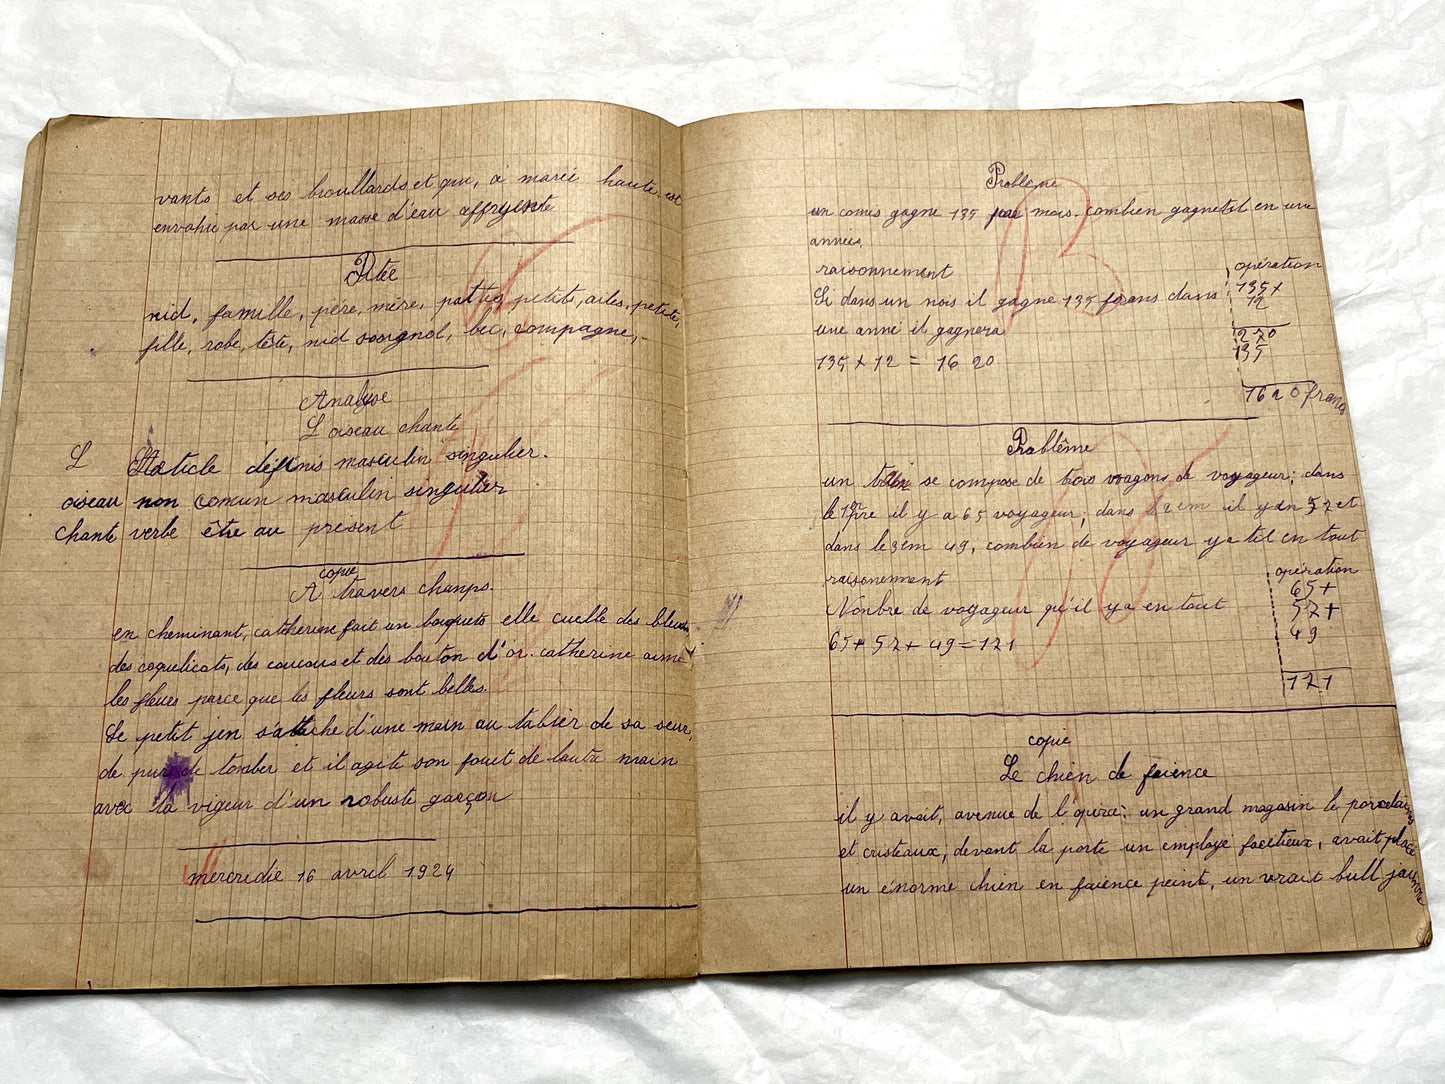 vants et ses brouillards et qui, a marée haute est
envahie par une masse d'eau
Dictée
nid, famille, père, mère, pattes, petits, ailes, petite,
fille, robe, tête, nid sosignol, bec, compagne,
Analyse
L oiseau chante
L article définis masculin singulier.
oiseau non comun masculin singulier
chante verbe être au présent
copie
A travers champs.
en cheminant, catherine fait un boiquets elle cuelle des
des coquelicots, des coucous et des bouton d'or. catherine aime
les fleues parce que les fleurs sont belles.
Le petit jen s'attache d'une main au tablier de sa seur,
de pur de tomber et il agite son fouet de lautre main
avec la vigeur d'un robuste garçon
mercredie 16 avril 1924
Problème
un comis gagne 135 par mois. combien gagnetil en une
années.
raisonnement
opération
Si dans un mois il gagne 135 frans dans
une anné il gagnera
135 x 12 = 16 20
135 x
12
270
135
1620 francs
Problême
un train se compose de trois wagons de voyageur; dans
le 1er il y a 65 voyageur; dans le 2em il y an 57 et
dans le 3em 49; combien de voyageur ya til en tout
raisonement
opération
Nonbre de voyageur qu'il ya en tout
65 + 57 + 49 = 171
65 +
57 +
49
171
copie
Le chien de faience
il y avait, avenue de l'opera: un grand magasin le porcelaines
et cristeaux, devant la porte un employé facétieux, avait placé
un énorme chien en faience peint, un vrait bull